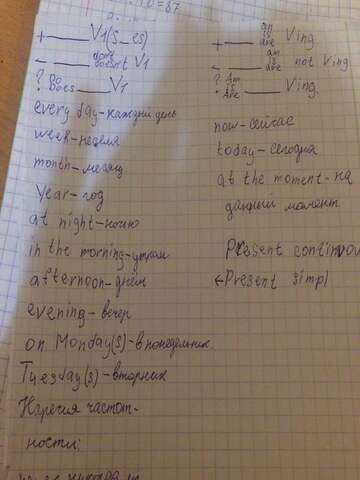 + ___ V1(s_es)
- ___ don't doesn't V1
? Do Does ___ V1
every day-каждый день
week-неделя
month-месяц
year-год
at night-ночью
in the morning-утром
afternoon-днем
evening-вечер
on Monday(s)-в понедельник
Tuesday(s)-вторник
Наречия частот-
ности:
+ ___ are Ving
- ___ am are not Ving
? Am Is Are ___ Ving
now-сейчас
today-сегодня
at the moment-на
данный момент
Present continuou
←Present simpl